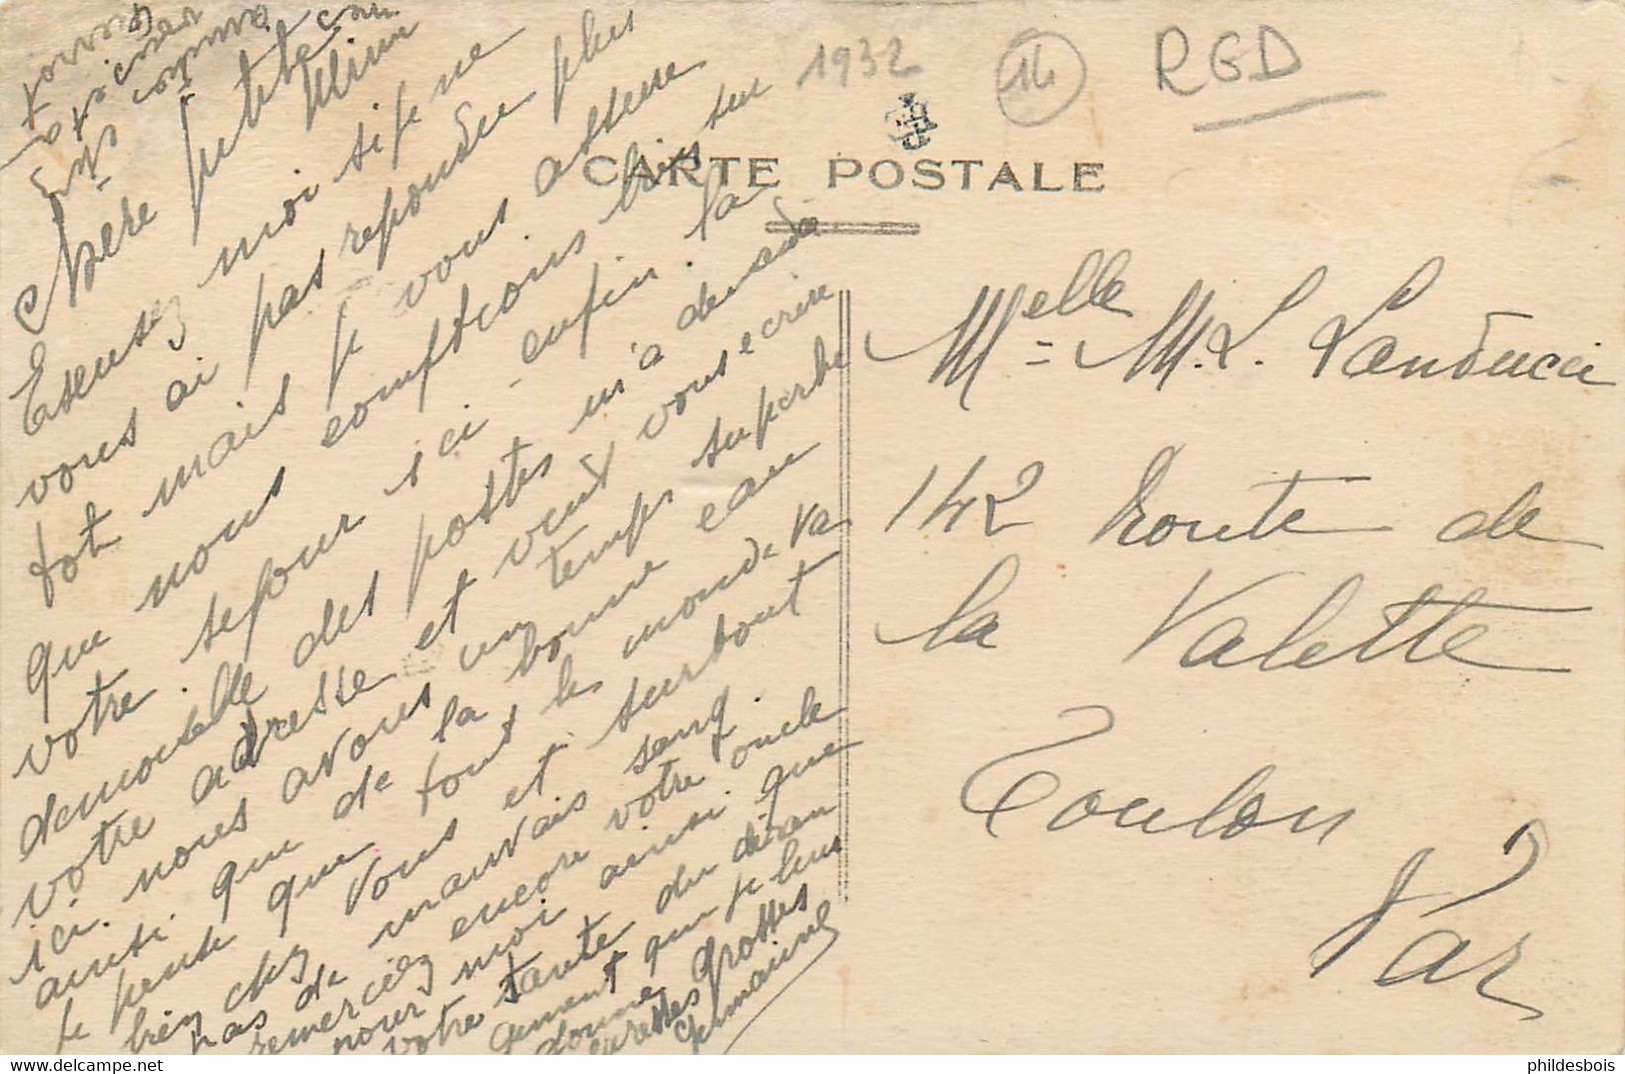 1932
14
RGD
CARTE POSTALE
Chere petite
Mimi
Excusez moi si je ne
vous ai pas repondu plus
tot mais je vous assure
que nous comptions bien sur
votre sejour ici - enfin. la
demoiselle des postes m'a demandé
votre adresse et veut vous ecrire
ici. nous avons un temps superbe
ainsi que de la bonne eau
je pense que tout le monde va
bien chez vous et surtout
pas de mauvais sang.
remerciez encore votre oncle
pour moi ainsi que
votre tante du déran
gement que je leur
donne Grosses
caresses
Germaine
Melle M. L. Landucci
142 Route de
la Valette
Toulon
Var
phildesbois